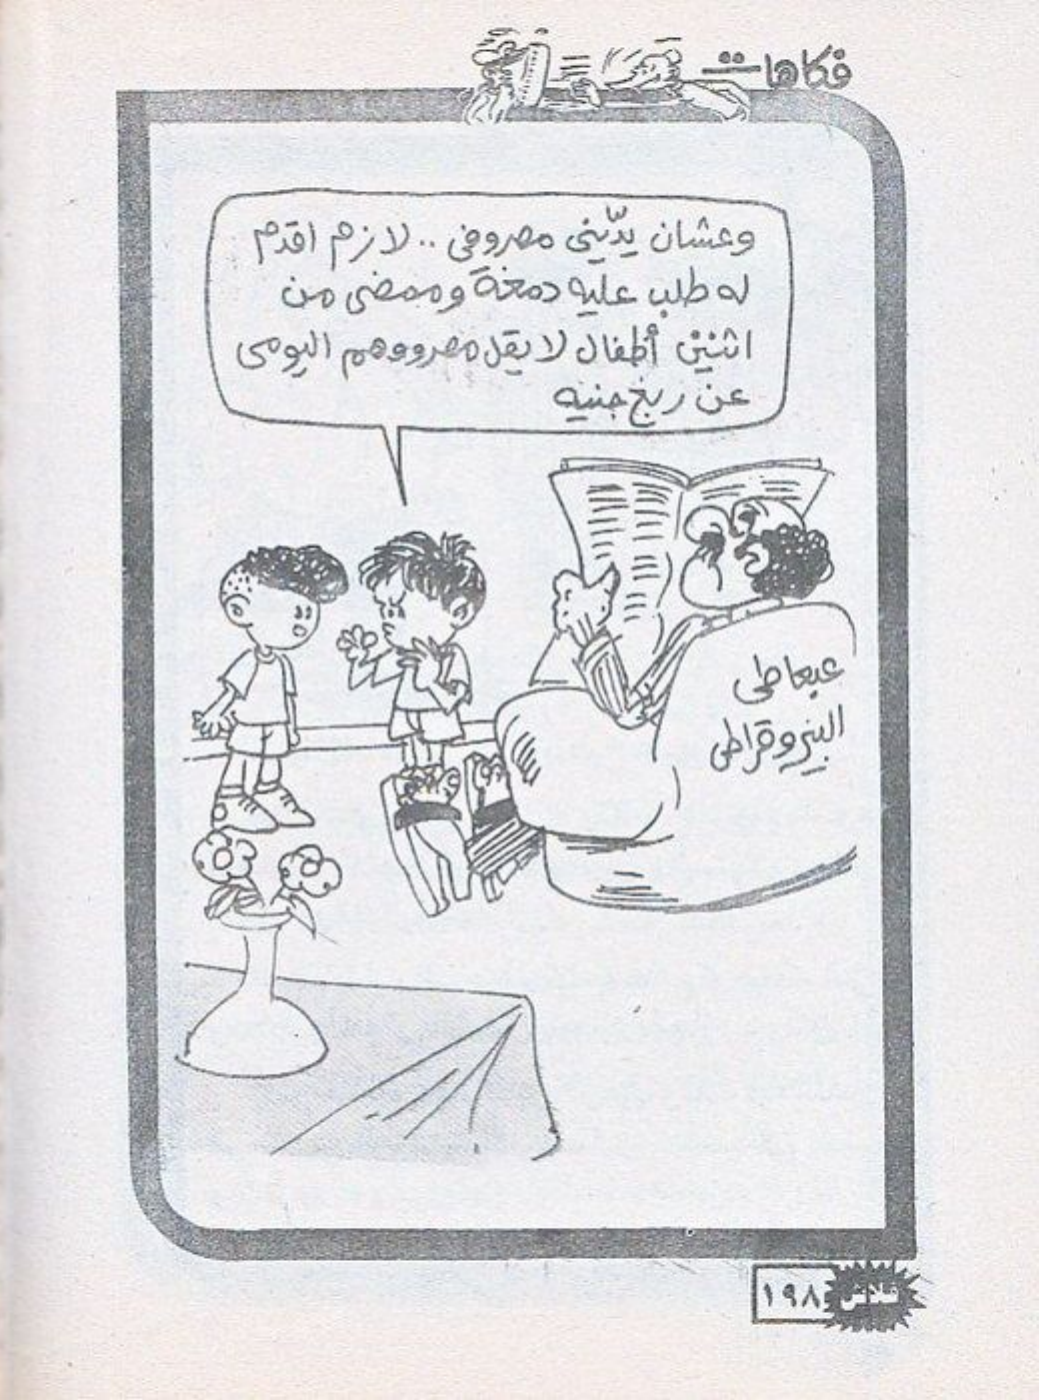 فكاهات
وعشان يدّينى مصروفى .. لازم اقدم
له طلب عليه دمغة وممضى من
اثنين أطفال لا يقل مصروفهم اليومى
عن ربع جنيه
عبعاطى
البيروقراطى
فلاش
١٩٨